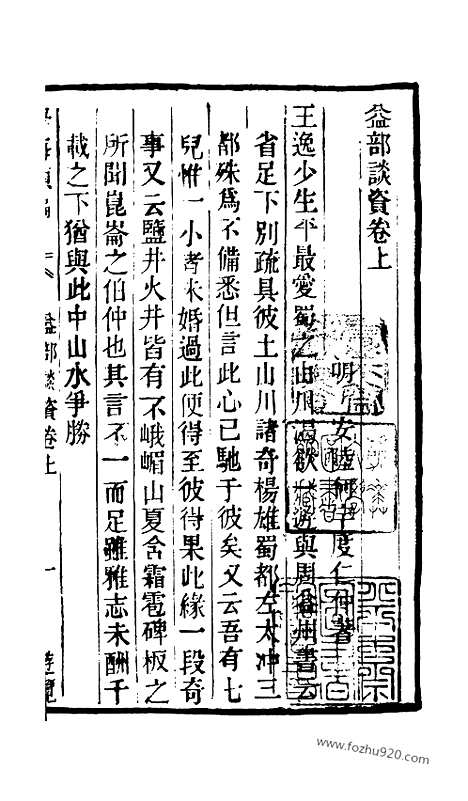 益部談資卷上
明 安陸何宇度仁仲著
王逸少生平最愛蜀之山川 欲一遊與周益州書云
省足下別疏具彼土山川諸奇楊雄蜀都左太冲三
都殊爲不備悉但言此心已馳于彼矣又云吾有七
兒惟一小者未婚過此便得至彼得果此緣一段奇
事又云鹽井火井皆有不峨嵋山夏含霜雹碑板之
所聞崑崙之伯仲也其言不一而足雖雅志未酬千
載之下猶與此中山水爭勝
益部談資卷上 一
www.fozhu920.com